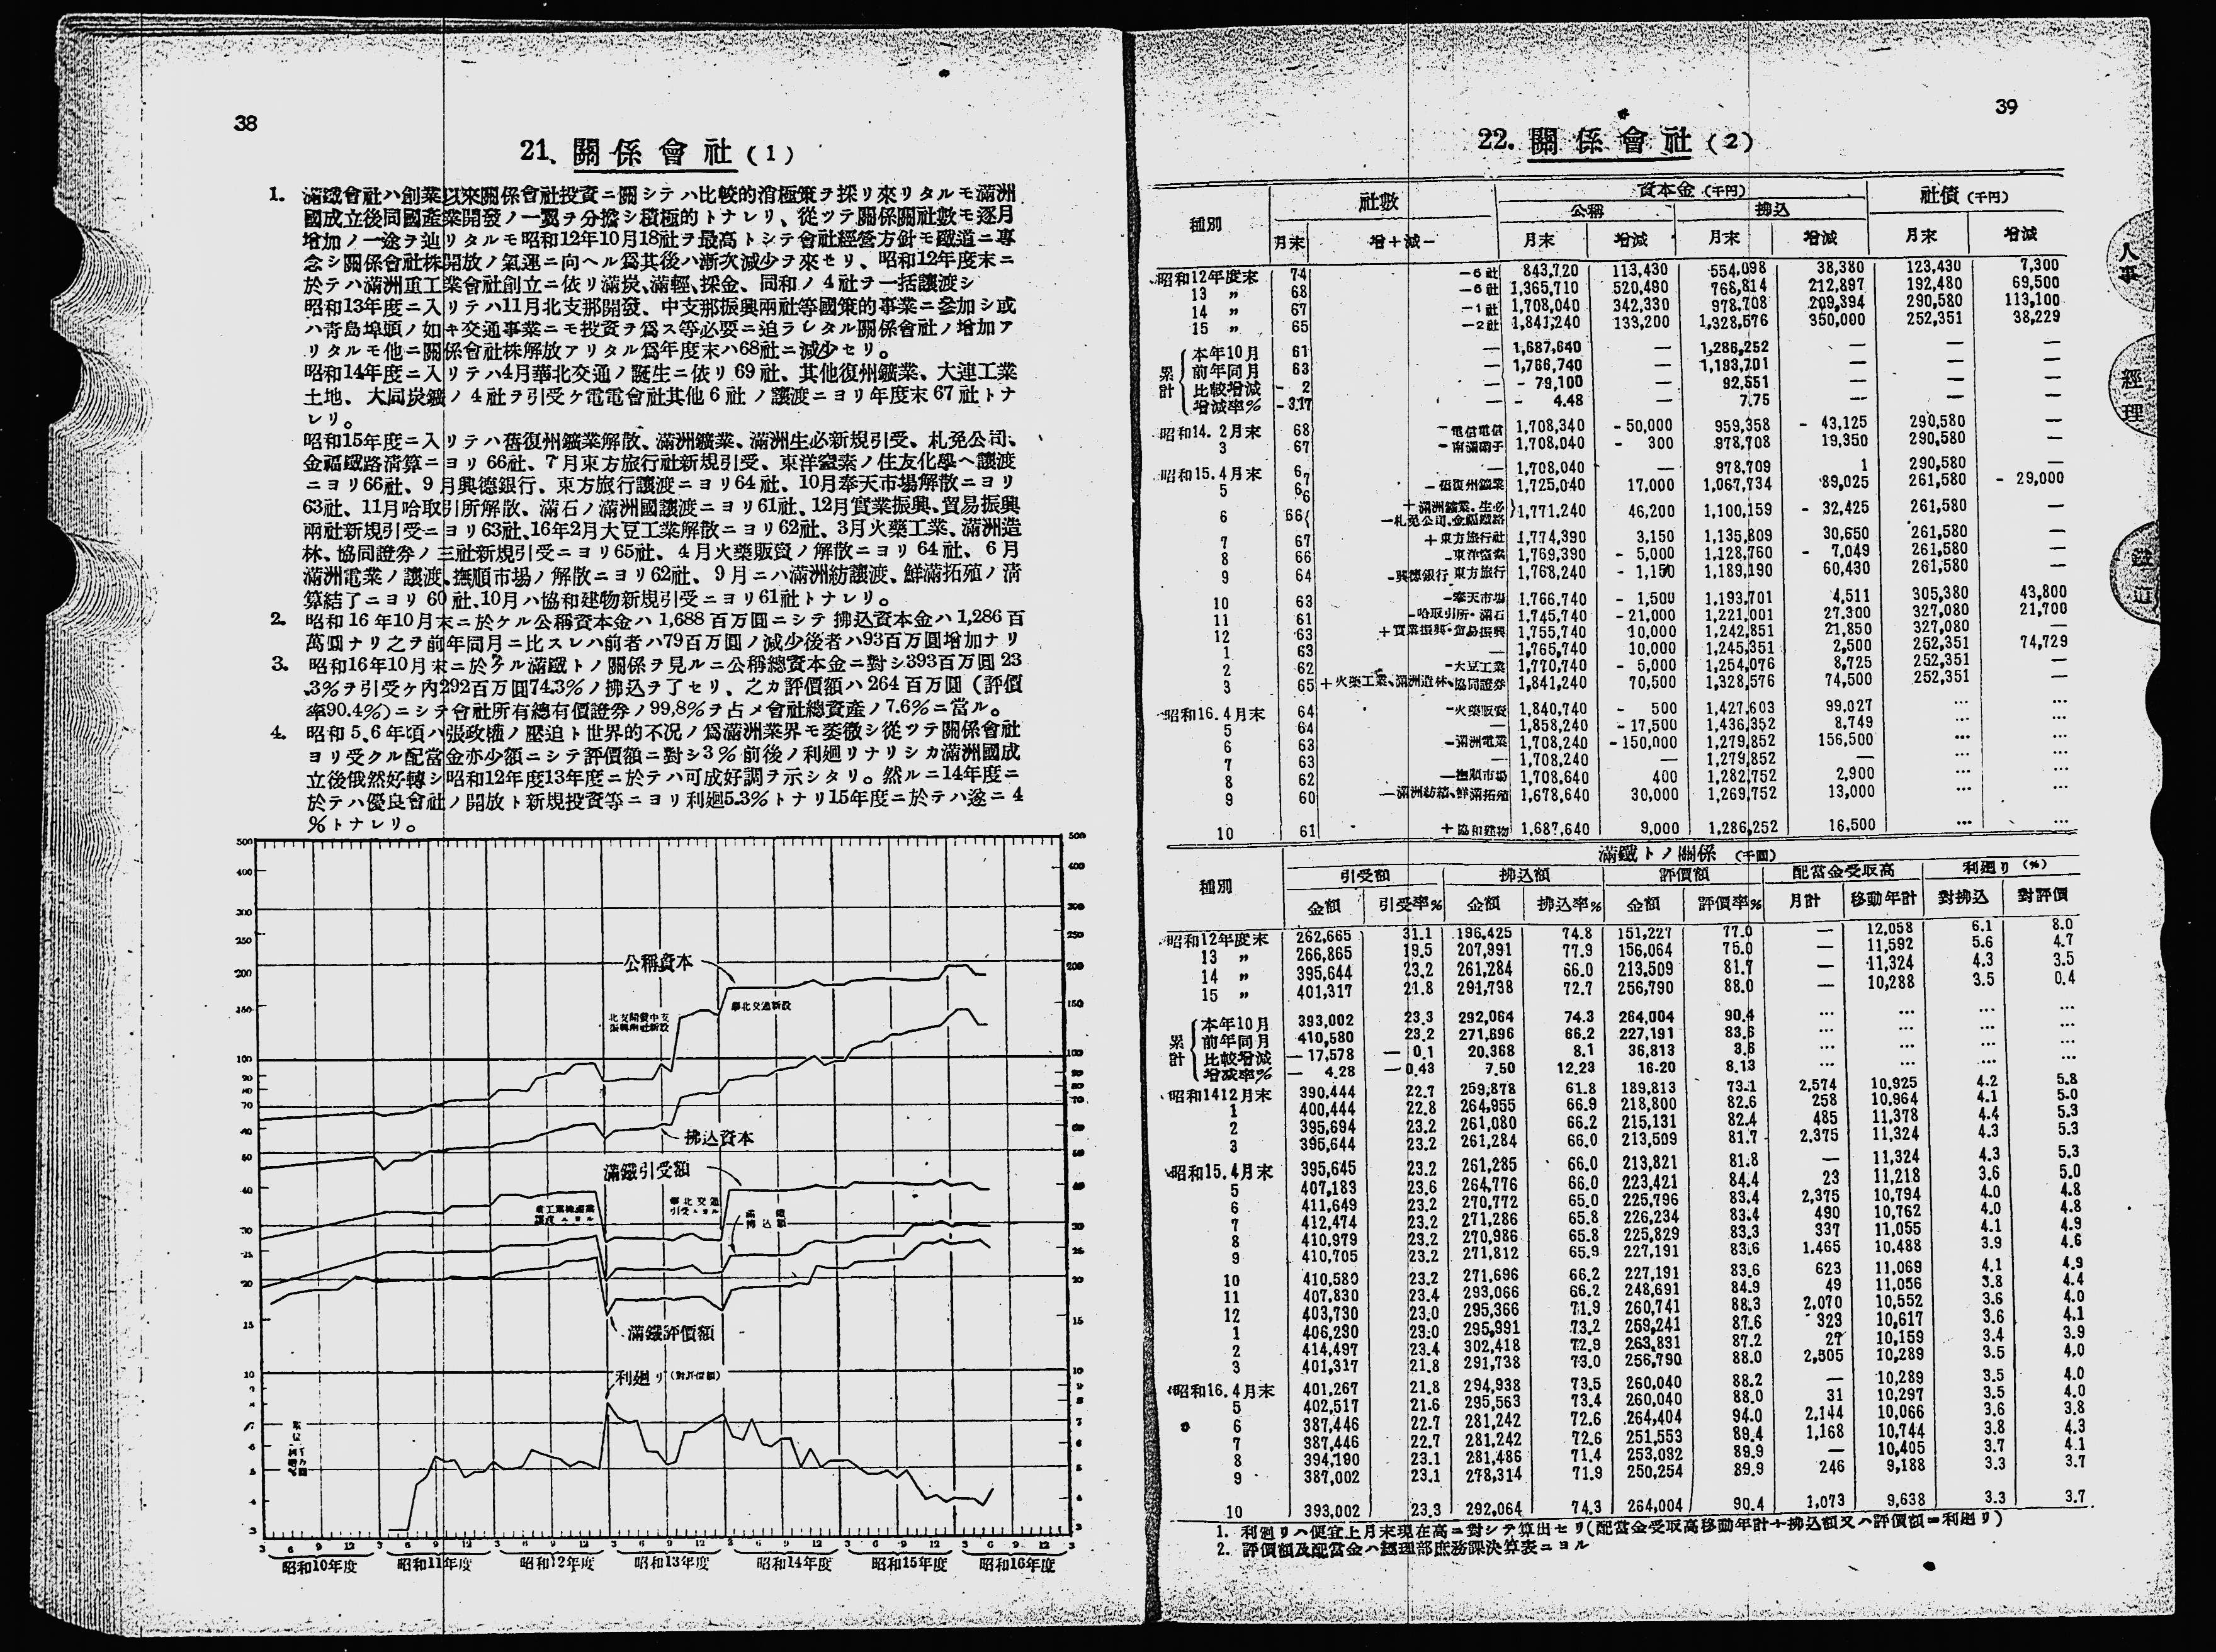 38
21. 關係會社(1)
1. 滿鐵會社ハ創業以來關係會社投資ニ關シテハ比較的消極策ヲ採リ來リタルモ滿洲
國成立後同國產業開發ノ一翼ヲ分擔シ積極的トナレリ、從ツテ關係關社數モ逐月
增加ノ一途ヲ辿リタルモ昭和12年10月18社ヲ最高トシテ會社經營方針モ鐵道ニ專
念シ關係會社株開放ノ氣運ニ向ヘル爲其後ハ漸次減少ヲ來セリ、昭和12年度末ニ
於テハ滿洲重工業會社創立ニ依リ滿炭、滿輕、採金、同和ノ4社ヲ一括讓渡シ
昭和13年度ニ入リテハ11月北支那開發、中支那振興兩社等國策的事業ニ參加シ或
ハ青島埠頭ノ如キ交通事業ニモ投資ヲ爲ス等必要ニ迫ラレタル關係會社ノ增加ア
リタルモ他ニ關係會社株解放アリタル爲年度末ハ68社ニ減少セリ。
昭和14年度ニ入リテハ4月華北交通ノ誕生ニ依リ69社、其他復州鑛業、大連工業
土地、大同炭鑛ノ4社ヲ引受ケ電電會社其他6社ノ讓渡ニヨリ年度末67社トナ
レリ。
昭和15年度ニ入リテハ舊復州鑛業解散、滿洲鑛業、滿洲生必新規引受、札免公司、
金福鐵路淸算ニヨリ66社、7月東方旅行社新規引受、東洋窒素ノ住友化學ヘ讓渡
ニヨリ66社、9月興德銀行、東方旅行讓渡ニヨリ64社、10月奉天市場解散ニヨリ
63社、11月哈取引所解散、滿石ノ滿洲國讓渡ニヨリ61社、12月實業振興、貿易振興
兩社新規引受ニヨリ63社、16年2月大豆工業解散ニヨリ62社、3月火藥工業、滿洲造
林、協同證券ノ三社新規引受ニヨリ65社、4月火藥販賣ノ解散ニヨリ64社、6月
滿洲電業ノ讓渡、撫順市場ノ解散ニヨリ62社、9月ニハ滿洲紡讓渡、鮮滿拓殖ノ淸
算結了ニヨリ60社、10月ハ協和建物新規引受ニヨリ61社トナレリ。
2. 昭和16年10月末ニ於ケル公稱資本金ハ1,688百万圓ニシテ拂込資本金ハ1,286百
萬圓ナリ之ヲ前年同月ニ比スレハ前者ハ79百万圓ノ減少後者ハ93百万圓增加ナリ
3. 昭和16年10月末ニ於ケル滿鐵トノ關係ヲ見ルニ公稱總資本金ニ對シ393百万圓23
.3%ヲ引受ケ內292百万圓74.3%ノ拂込ヲ了セリ、之カ評價額ハ264百万圓(評價
率90.4%)ニシテ會社所有總有價證券ノ99.8%ヲ占メ會社總資產ノ7.6%ニ當ル。
4. 昭和5、6年頃ハ張政權ノ壓迫ト世界的不況ノ爲滿洲業界モ萎微シ從ツテ關係會社
ヨリ受クル配當金亦少額ニシテ評價額ニ對シ3%前後ノ利廻リナリシカ滿洲國成
立後俄然好轉シ昭和12年度13年度ニ於テハ可成好調ヲ示シタリ。然ルニ14年度ニ
於テハ優良會社ノ開放ト新規投資等ニヨリ利廻5.3%トナリ15年度ニ於テハ遂ニ4
%トナレリ。
公稱資本
北支開發中支
振興兩社新設
華北交通新設
拂込資本
滿鐵引受額
重工業株滿業
讓渡ニヨル
華北交通
引受ニヨル
滿鐵
拂込額
滿鐵評價額
利廻リ(對評價額)
昭和10年度 昭和11年度 昭和12年度 昭和13年度 昭和14年度 昭和15年度 昭和16年度
39
22. 關係會社(2)
種別 社數 資本金(千円) 社債(千円)
公稱 拂込
月末 增+減− 月末 增減 月末 增減 月末 增減
昭和12年度末 74 −6社 843,720 113,430 554,098 38,380 123,430 7,300
13 〃 68 −6社 1,365,710 520,490 768,814 212,897 192,480 69,500
14 〃 67 −1社 1,708,040 342,330 978,708 209,394 290,580 113,100
15 〃 65 −2社 1,841,240 133,200 1,328,576 350,000 252,351 38,229
累計
本年10月 61 — 1,687,640 — 1,286,252 — — —
前年同月 63 — 1,766,740 — 1,193,701 — — —
比較增減 - 2 — - 79,100 — 92,551 — — —
增減率% - 3.17 — - 4.48 — 7.75 — — —
昭和14. 2月末 68 −電信電信 1,708,340 - 50,000 959,358 - 43,125 290,580 —
3 67 −南滿硝子 1,708,040 - 300 978,708 19,350 290,580 —
昭和15.4月末 67 — 1,708,040 — 978,709 1 290,580 —
5 66 −舊復州鑛業 1,725,040 17,000 1,067,734 89,025 261,580 - 29,000
6 66 +滿洲鑛業.生必 −札免公司.金福鐵路 1,771,240 46,200 1,100,159 - 32,425 261,580 —
7 67 +東方旅行社 1,774,390 3,150 1,135,809 30,650 261,580 —
8 66 −東洋窒素 1,769,390 - 5,000 1,128,760 - 7,049 261,580 —
9 64 −興德銀行 東方旅行 1,768,240 - 1,150 1,189,190 60,430 261,580 —
10 63 −奉天市場 1,766,740 - 1,500 1,193,701 4,511 305,380 43,800
11 61 −哈取引所・滿石 1,745,740 - 21,000 1,221,001 27,300 327,080 21,700
12 63 +實業振興・貿易振興 1,755,740 10,000 1,242,851 21,850 327,080 —
1 63 — 1,765,740 10,000 1,245,351 2,500 252,351 74,729
2 62 −大豆工業 1,770,740 - 5,000 1,254,076 8,725 252,351 —
3 65 +火藥工業、滿洲造林、協同證券 1,841,240 70,500 1,328,576 74,500 252,351 —
昭和16.4月末 64 −火藥販賣 1,840,740 - 500 1,427,603 99,027 … …
5 64 — 1,858,240 - 17,500 1,436,352 8,749 … …
6 63 −滿洲電業 1,708,240 - 150,000 1,279,852 156,500 … …
7 63 — 1,708,240 — 1,279,852 — … …
8 62 −撫順市場 1,708,640 400 1,282,752 2,900 … …
9 60 −滿洲紡績、鮮滿拓殖 1,678,640 30,000 1,269,752 13,000 … …
10 61 +協和建物 1,687,640 9,000 1,286,252 16,500 … …
滿鐵トノ關係 (千圓)
種別 引受額 拂込額 評價額 配當金受取高 利廻リ(%)
金額 引受率% 金額 拂込率% 金額 評價率% 月計 移動年計 對拂込 對評價
昭和12年度末 262,665 31.1 196,425 74.8 151,227 77.0 — 12,058 6.1 8.0
13 〃 266,865 19.5 207,991 77.9 156,064 75.0 — 11,592 5.6 4.7
14 〃 395,644 23.2 261,284 66.0 213,509 81.7 — 11,324 4.3 3.5
15 〃 401,317 21.8 291,738 72.7 256,790 88.0 — 10,288 3.5 0.4
累計
本年10月 393,002 23.3 292,064 74.3 264,004 90.4 … … … …
前年同月 410,580 23.2 271,696 66.2 227,191 83.6 … … … …
比較增減 — 17,578 — 0.1 20,368 8.1 36,813 3.6 … … … …
增減率% — 4.28 — 0.43 7.50 12.23 16.20 8.13 … … … …
昭和1412月末 390,444 22.7 259,878 61.8 189,813 73.1 2,574 10,925 4.2 5.8
1 400,444 22.8 264,955 66.9 218,800 82.6 258 10,964 4.1 5.0
2 395,694 23.2 261,080 66.2 215,131 82.4 485 11,378 4.4 5.3
3 395,644 23.2 261,284 66.0 213,509 81.7 2,375 11,324 4.3 5.3
昭和15.4月末 395,645 23.2 261,285 66.0 213,821 81.8 — 11,324 4.3 5.3
5 407,183 23.6 264,776 66.0 223,421 84.4 23 11,218 3.6 5.0
6 411,649 23.2 270,772 65.0 225,796 83.4 2,375 10,794 4.0 4.8
7 412,474 23.2 271,286 65.8 226,234 83.4 490 10,762 4.0 4.8
8 410,979 23.2 270,986 65.8 225,829 83.3 337 11,055 4.1 4.9
9 410,705 23.2 271,812 65.9 227,191 83.6 1,465 10,488 3.9 4.6
10 410,580 23.2 271,696 66.2 227,191 83.6 623 11,069 4.1 4.9
11 407,830 23.4 293,066 66.2 248,691 84.9 49 11,056 3.8 4.4
12 403,730 23.0 295,366 71.9 260,741 88.3 2,070 10,552 3.6 4.0
1 406,230 23.0 295,991 73.2 259,241 87.6 323 10,617 3.6 4.1
2 414,497 23.4 302,418 72.9 263,831 87.2 27 10,159 3.4 3.9
3 401,317 21.8 291,738 73.0 256,790 88.0 2,505 10,289 3.5 4.0
昭和16.4月末 401,267 21.8 294,938 73.5 260,040 88.2 — 10,289 3.5 4.0
5 402,517 21.6 295,563 73.4 260,040 88.0 31 10,297 3.5 4.0
6 387,446 22.7 281,242 72.6 264,404 94.0 2,144 10,066 3.6 3.8
7 387,446 22.7 281,242 72.6 251,553 89.4 1,168 10,744 3.8 4.3
8 394,190 23.1 281,486 71.4 253,082 89.9 — 10,405 3.7 4.1
9 387,002 23.1 278,314 71.9 250,254 89.9 246 9,188 3.3 3.7
10 393,002 23.3 292,064 74.3 264,004 90.4 1,073 9,638 3.3 3.7
1. 利廻リハ便宜上月末現在高ニ對シテ算出セリ(配當金受取高移動年計÷拂込額又ハ評價額=利廻リ)
2. 評價額及配當金ハ經理部庶務課決算表ニヨル
人事
經理